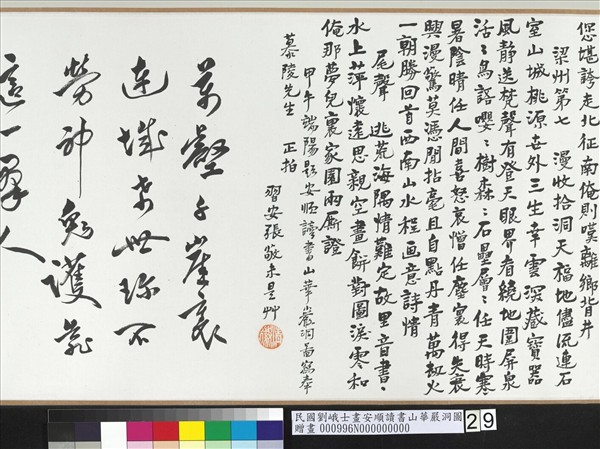 您堪誇走北征南俺則嘆離鄉背井
梁州第七 漫收拾洞天福地儘流連石
室山城桃源世外三生幸雲深藏寶器
風靜送梵聲有登天眼界看繞地圍屏泉
活活鳥語嚶嚶樹森森石壘層層任天時寒
暑陰晴任人間喜怒哀憎任塵寰得失衰
興漫驚莫憑閒拈毫且自點丹青萬劫火
一朝勝回首西南山水程画意詩情
尾聲 逃荒海隅情難定故里音書
水上萍懷遠思親空畫餅對圖淚零和
俺那夢兒裏家園兩厮證
甲午端陽題安順讀書山華嚴洞圖寫奉
慕陵先生 正拍
習安張敬未是艸
萬壑千崖裏
連城希世珍不
勞神鬼護
這一群人
民國劉峨士畫安順讀書山華嚴洞圖
贈畫 000996N000000000
29